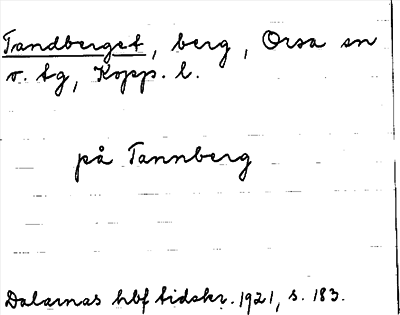 Tandberget, berg, Orsa sn
v. tg, Kopp. l.
på Tannberg
Dalarnas hbf tidskr. 1921, s. 183.